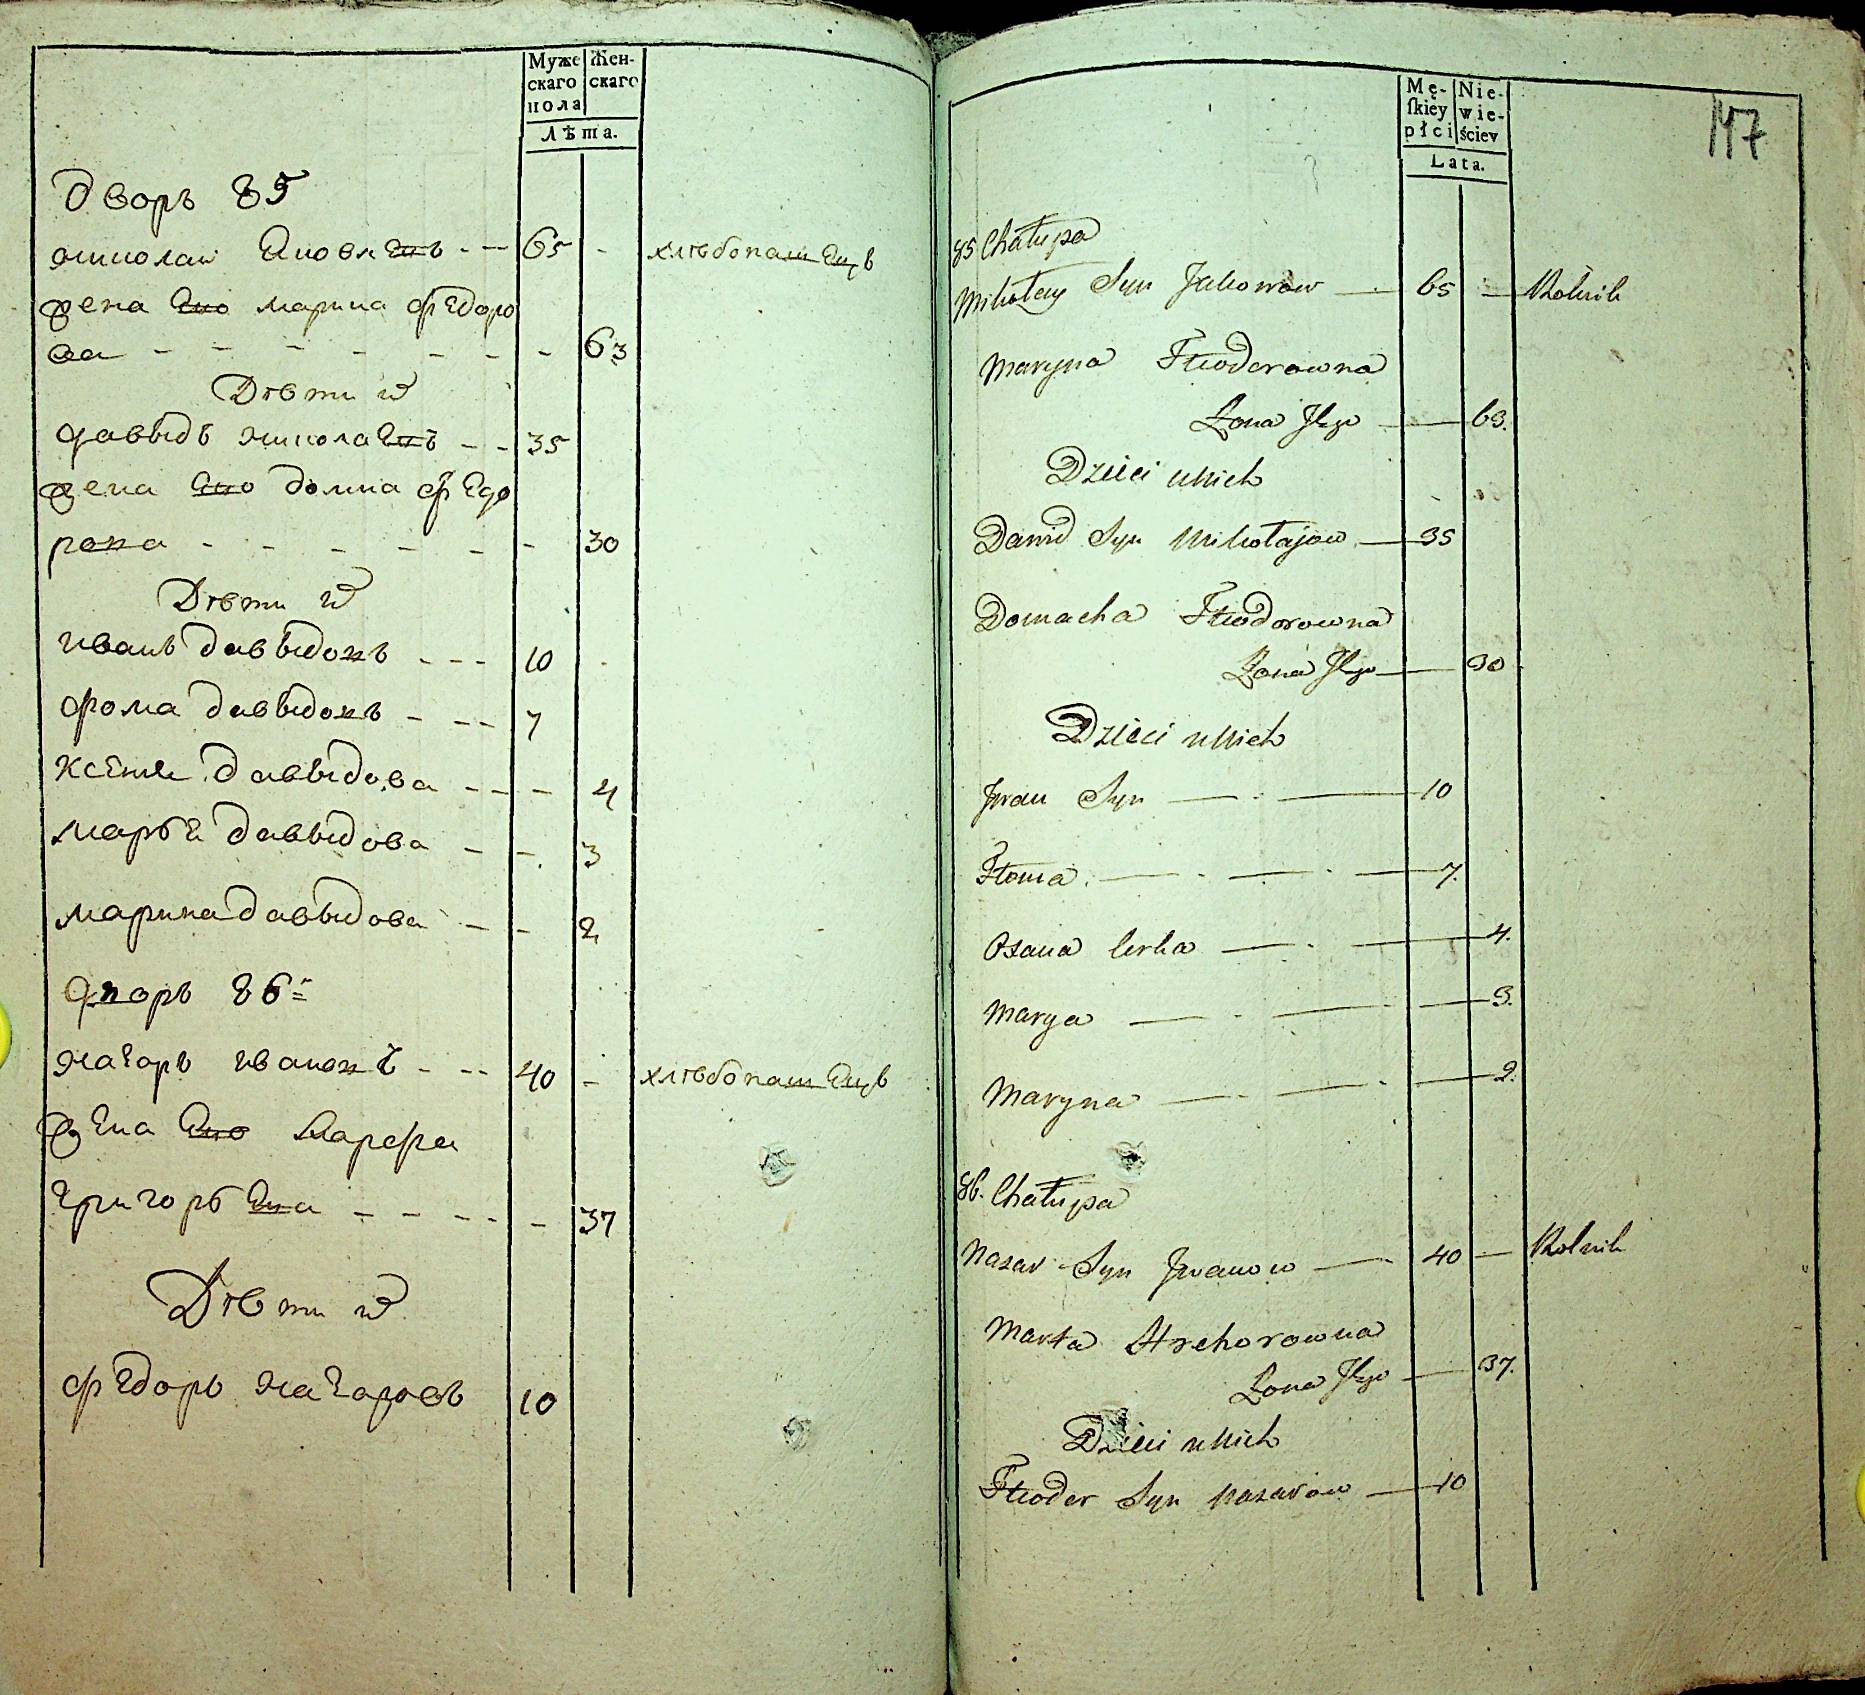 Муже
скаго
пола
Жен-
скаго
Лѣта.
Дворъ 85
Николаи Яковлевъ - - - 65 - хлѣбопашецъ
жена ево марина федоро
ва - - - - - - - 63
Дѣти ихъ
давыдъ николаевъ - - 35
жена ево домна федо
рова - - - - - - 30
Дѣти ихъ
иванъ давыдовъ - - - 10
фома давыдовъ - - - 7
Ксения давыдова - - - 4
марья давыдова - - 3
марина давыдова - - 2
дворъ 86
назаръ ивановъ - - - 40 - хлѣбопашецъ
жена ево марфа
григорьева - - - - - 37
Дѣти ихъ
федоръ назаровъ 10
Mę-
ſkiey
płci
Nie-
wie-
ściey
Lata.
147
85 Chałupa
Mikołay Syn Jakowow — 65 — Rolnik
Maryna Fteodorowna
Żona Jego — 63.
Dzieci u Nich
Dawid Syn Mikołajow — 35
Domacha Fteodorowna
Żona Jego — 30
Dzieci u Nich
Jwan Syn — 10
Ftoma — 7.
Oxana Corka — 4.
Marya — 3.
Maryna — 2.
86. Chałupa
Nazar Syn Jwanow — 40 — Rolnik
Marta Hrehorowna
Żona Jego — 37.
Dzieci u Nich
Fteodor Syn Nazarow — 10